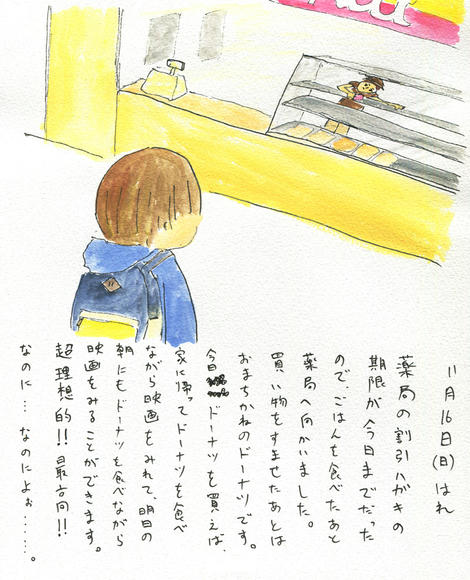 11月16日(日) はれ
薬局の割引ハガキの
期限が今日までだった
ので、ごはんを食べたあと
薬局へ向かいました。
買い物をすませたあとは
おまちかねのドーナツです。
今日ドーナツを買えば、
家に帰ってドーナツを食べ
ながら映画をみれて、明日の
朝にもドーナツを食べながら
映画をみることができます。
超理想的!!最高!!
なのに… なのによぉ……。